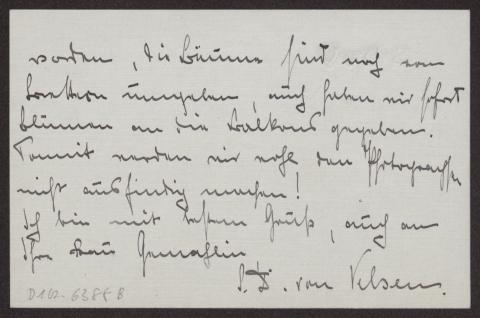 worden, die Bäume sind noch von
Brettern umgeben, auch haben wir sofort
Blumen an die Balkons gegeben.
Somit werden wir wohl den Photographen
nicht ausfindig machen!
Ich bin mit bestem Gruß, auch an
Ihre Frau Gemahlin
I. D. von Velsen.
D162-6385 B